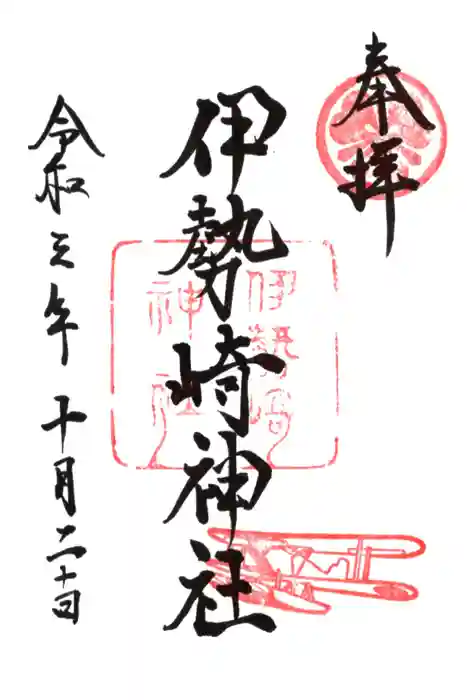 奉拝
伊勢崎神社
伊勢崎
神社
令和三年十月二十四